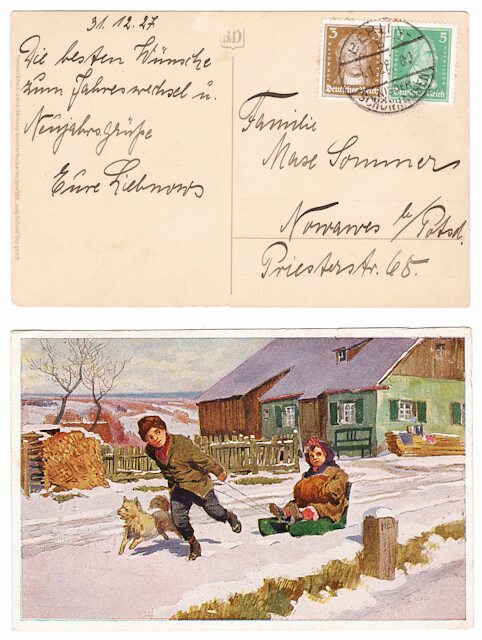 31.12.27
Die besten Wünsche
zum Jahreswechsel u.
Neujahrsgrüße
Eure Liebnows
3
5
Deutsches Reich
Deutsches Reich
BERLIN
SCHÖN
Familie
Max Sommer
Nowawes b/Potsd.
Priesterstr. 68.